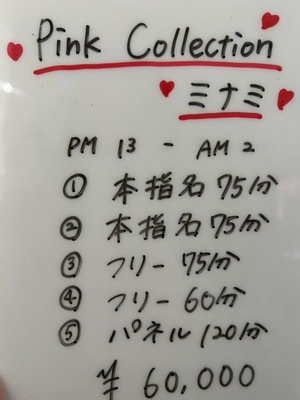 Pink Collection
ミナミ
PM 13 - AM 2
① 本指名 75分
② 本指名 75分
③ フリー 75分
④ フリー 60分
⑤ パネル 120分
¥ 60,000